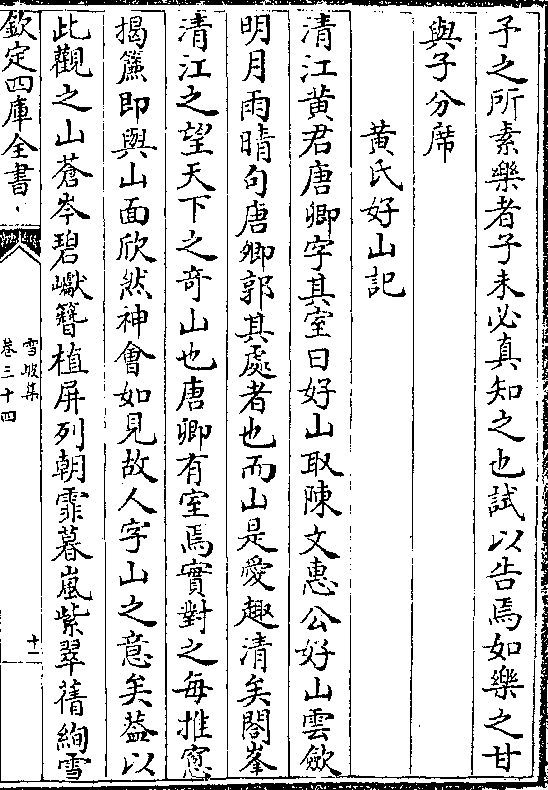 予之所素樂者子未必真知之也試以告焉如樂之甘
與子分席
黄氏好山記
清江黄君唐卿字其室曰好山取陳文惠公好山雲歛
明月雨晴句唐卿郭其處者也而山是愛趣清矣閤峯
清江之望天下之奇山也唐卿有室焉實對之每推窓
揭簾即與山面欣然神會如見故人字山之意矣葢以
此觀之山蒼岑碧巘簪植屏列朝霏暮嵐紫翠蒨絢雪
欽定四庫全書
雪坡集
卷三十四
十一